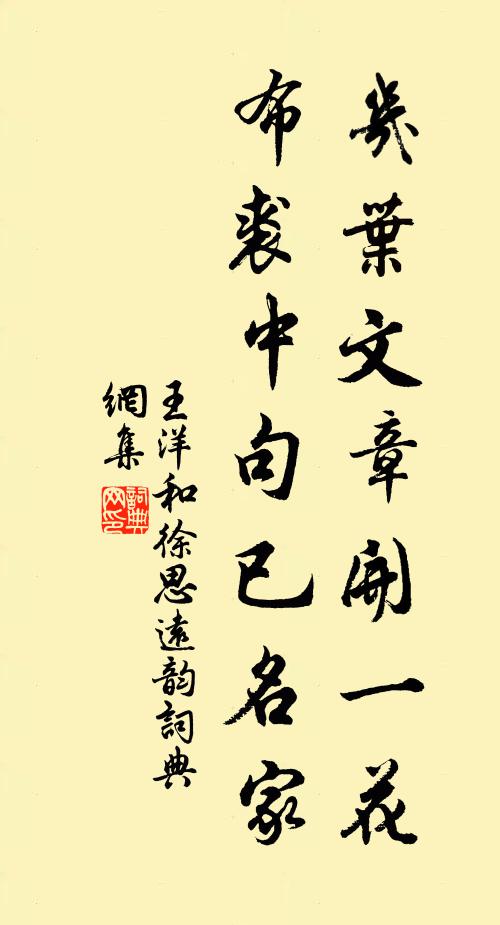 幾葉文章開一花
布裘中句已名家
王洋和徐思遠韵詞典
網集
詞典網印